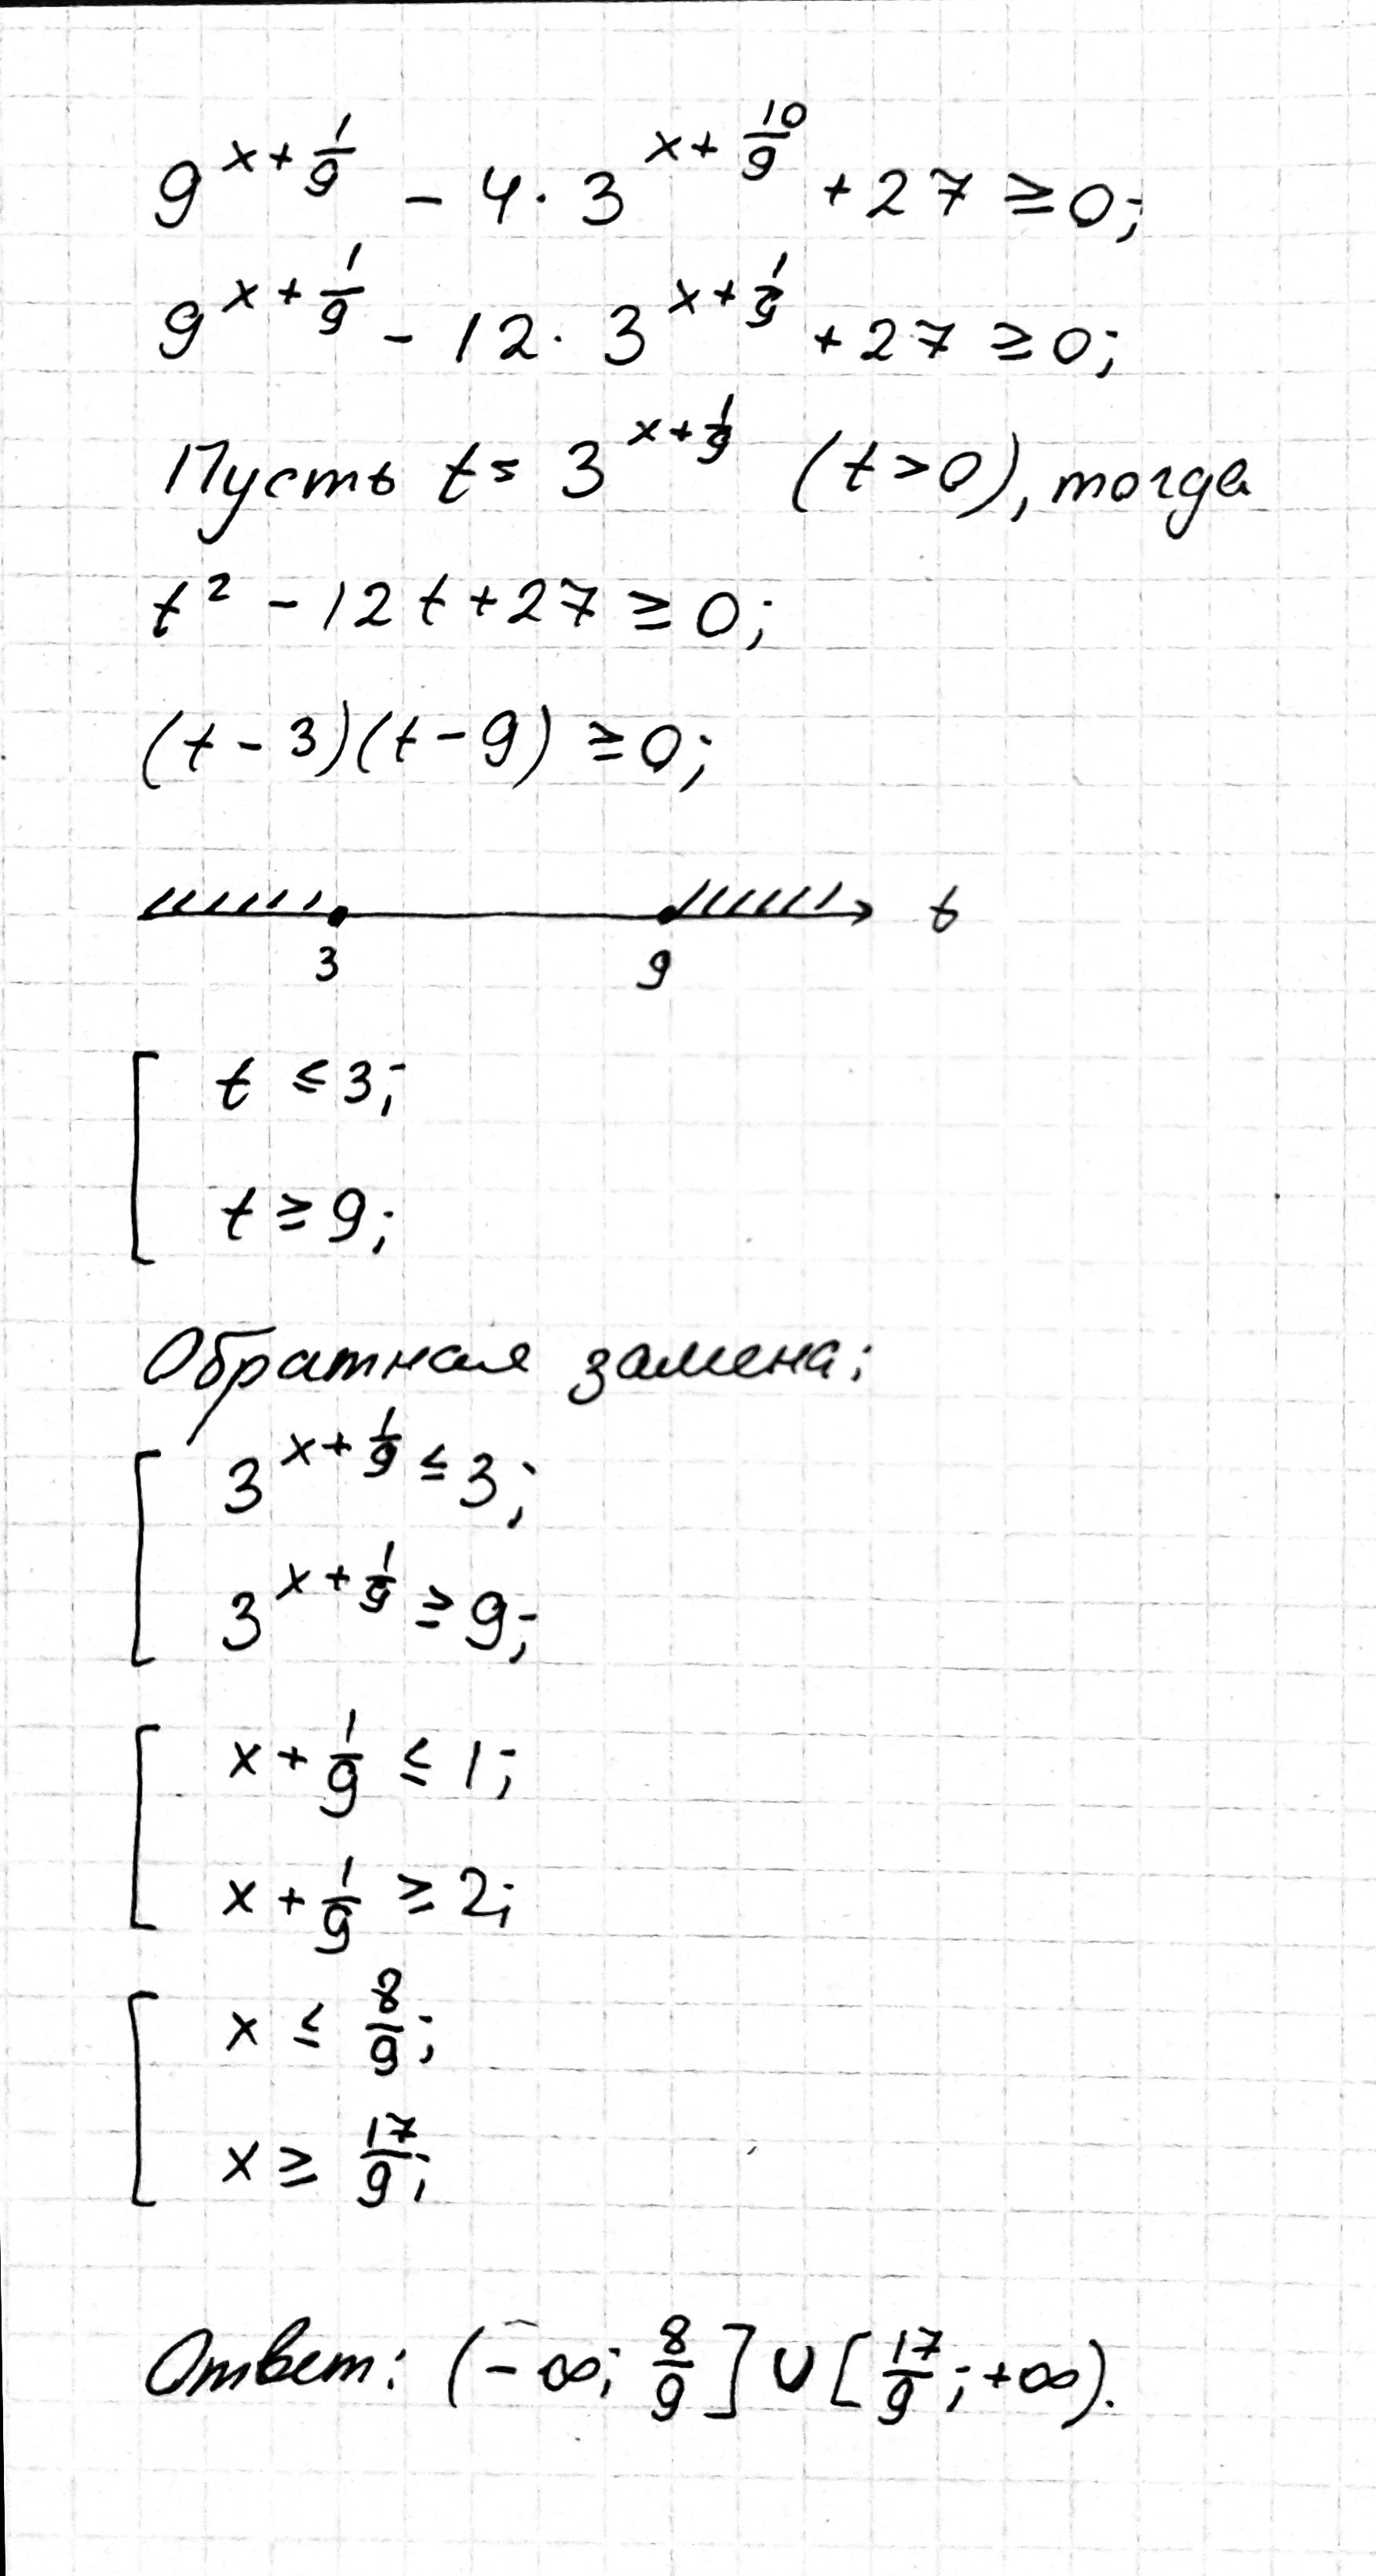 9^{x+\frac{1}{9}} - 4 · 3^{x+\frac{10}{9}} + 27 ≥ 0;
9^{x+\frac{1}{9}} - 12 · 3^{x+\frac{1}{9}} + 27 ≥ 0;
Пусть t = 3^{x+\frac{1}{9}} (t > 0), тогда
t² - 12t + 27 ≥ 0;
(t - 3)(t - 9) ≥ 0;
t
3 9
t ≤ 3;
t ≥ 9;
Обратная замена:
3^{x+\frac{1}{9}} ≤ 3;
3^{x+\frac{1}{9}} ≥ 9;
x + \frac{1}{9} ≤ 1;
x + \frac{1}{9} ≥ 2;
x ≤ \frac{8}{9};
x ≥ \frac{17}{9};
Ответ: (-∞; \frac{8}{9}] ∪ [\frac{17}{9}; +∞).